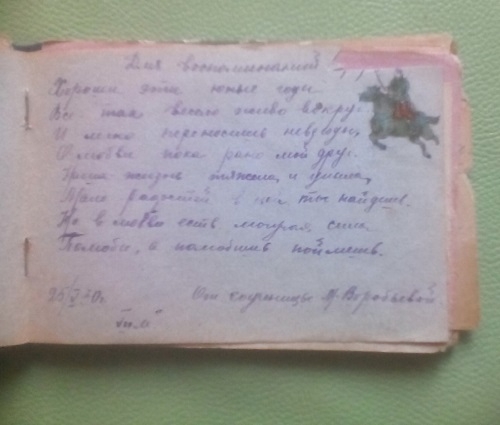 Для воспоминаний
Хороши эти юные годы
Всё так весело живо вокруг
И легко переносишь невзгоды,
О любви пока рано мой друг.
жизнь тяжела, и уныла,
Мало радостей в ней ты найдешь.
Но в любви есть могучая сила
Полюби, а полюбишь поймешь.
От соученицы М. Воробьевой